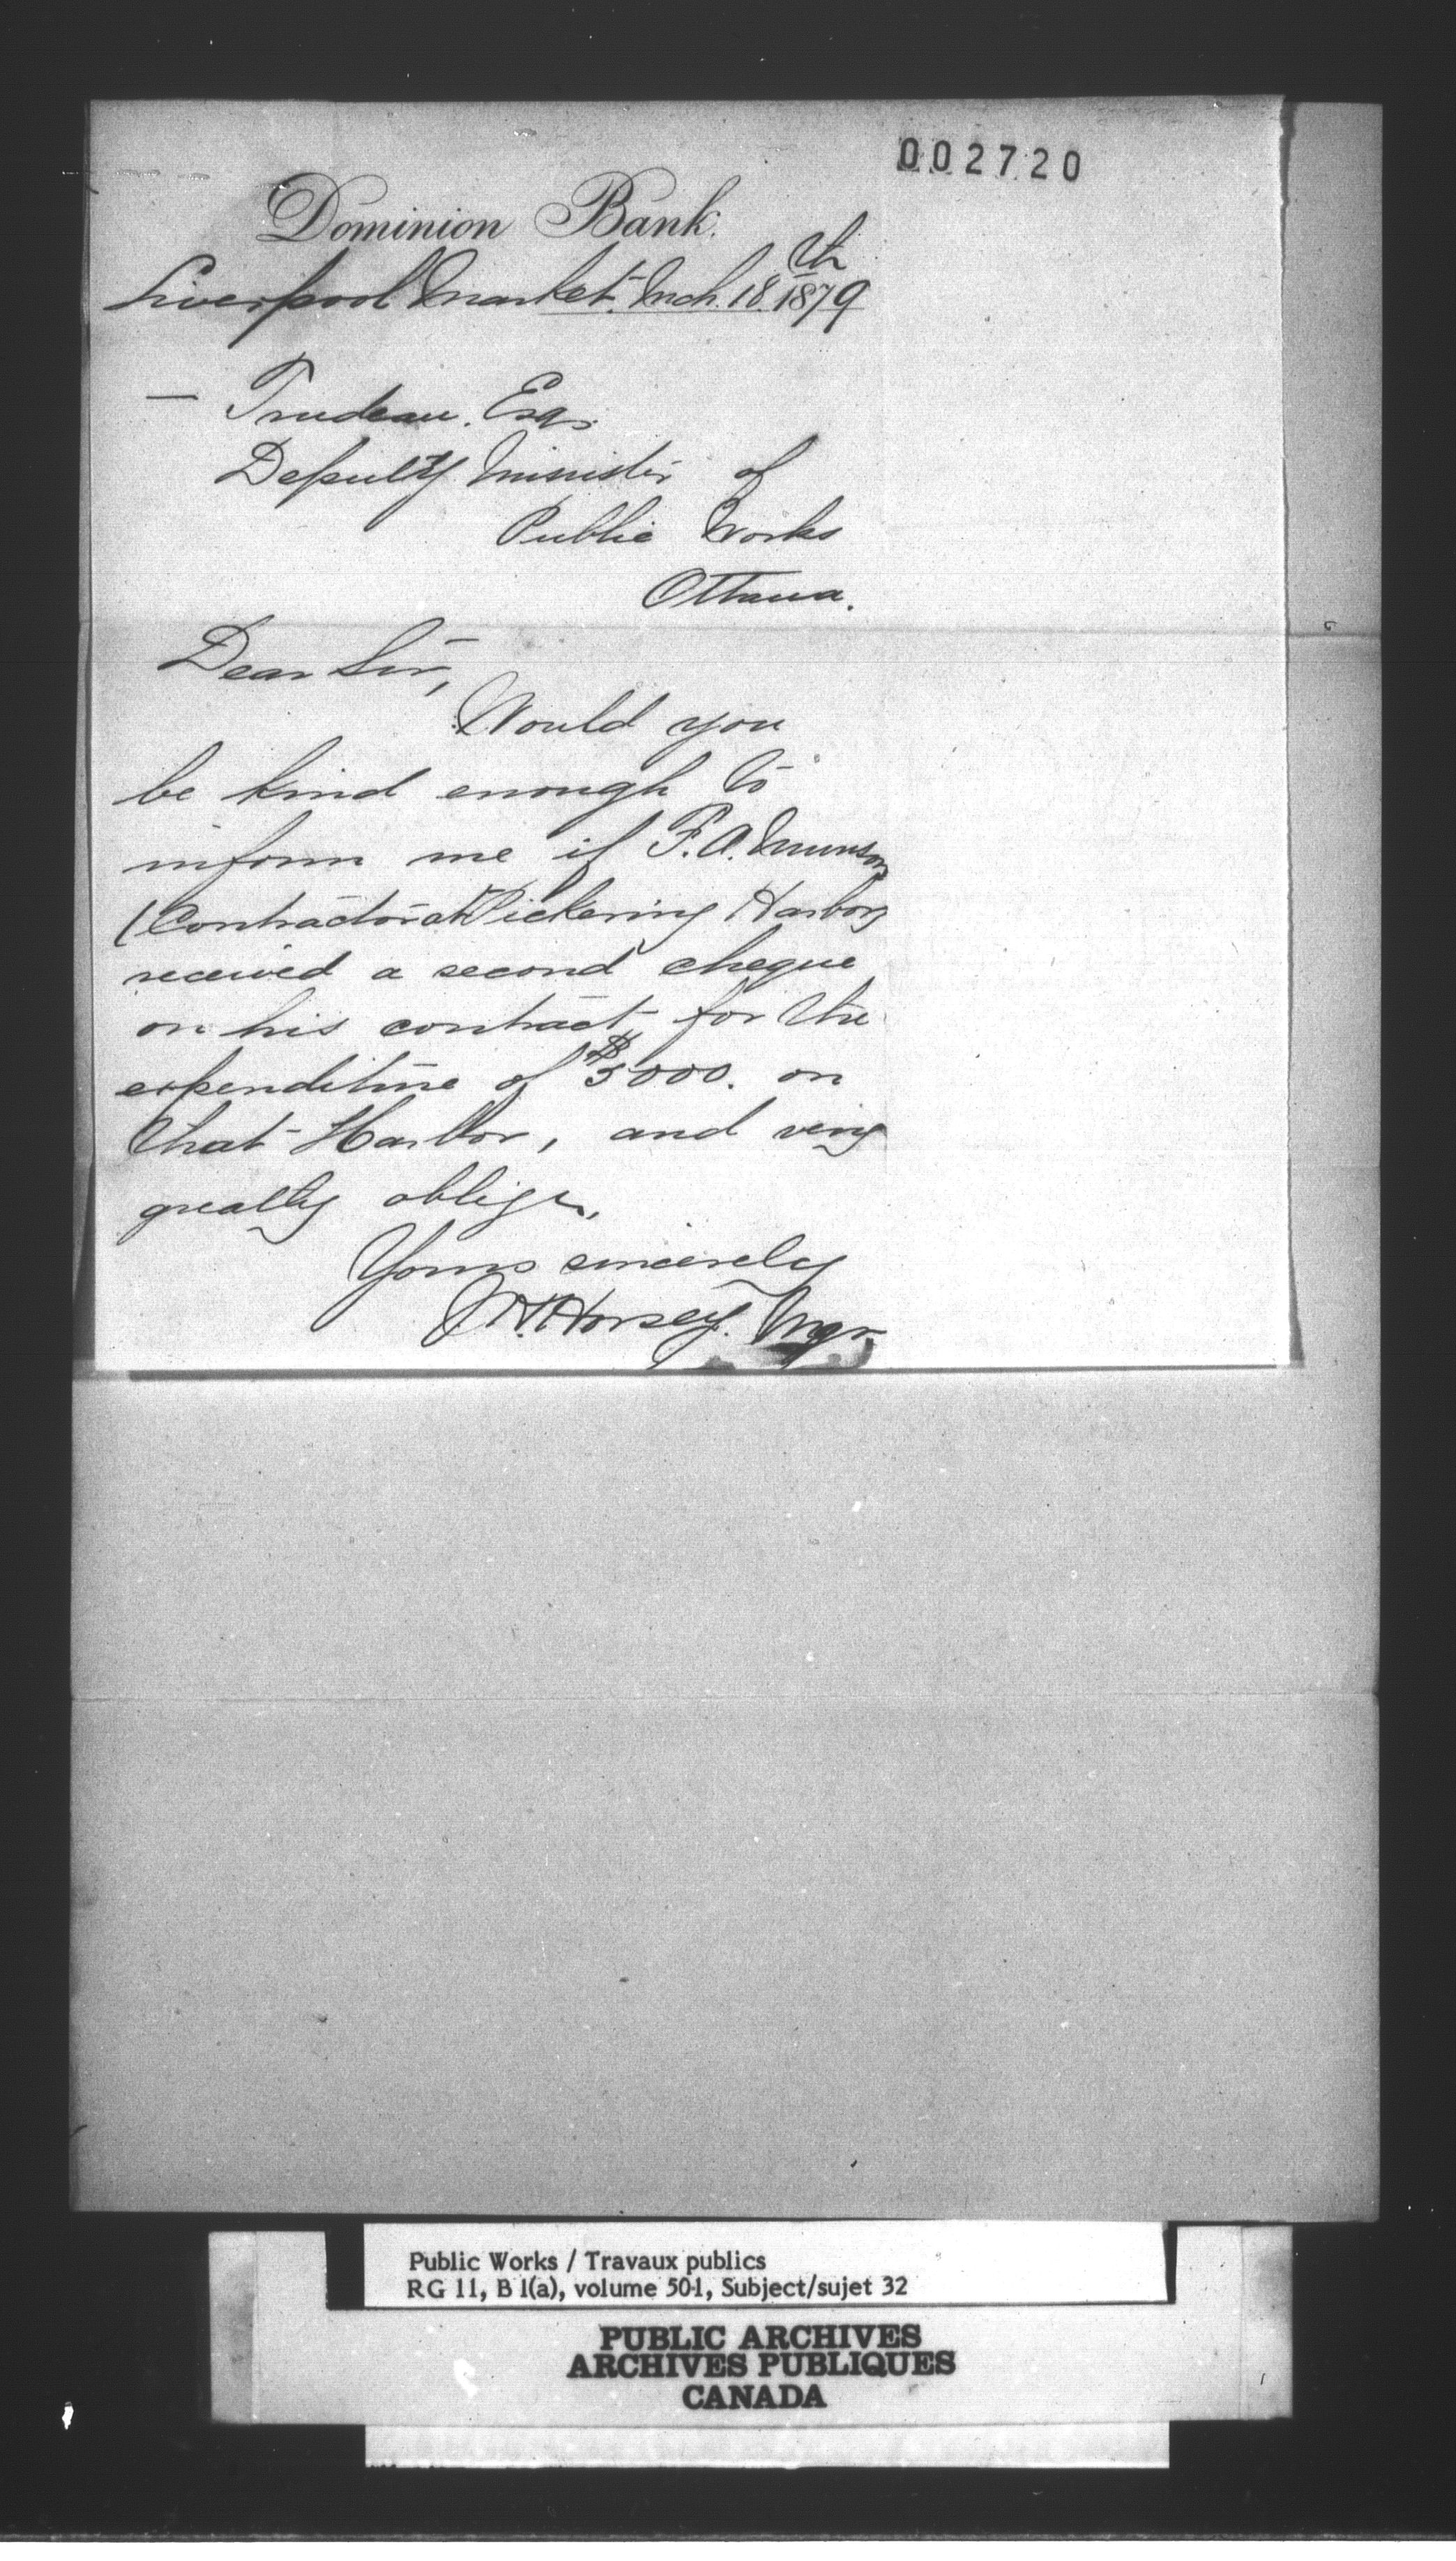 002720
Dominion Bank.
Liverpool Market. Mch. 18th 1879
— Trudeau. Esq.
Deputy Minister of
Public Works
Ottawa.
Dear Sir,
Would you
be kind enough to
inform me if F. A. Munson
(Contractor at Pickering Harbor)
received a second cheque
on his contract, for the
expenditure of $5000. on
that Harbor, and very
greatly oblige,
Yours sincerely
J. H. Horsey. Mgr.
Public Works / Travaux publics
RG 11, B 1(a), volume 501, Subject/sujet 32
PUBLIC ARCHIVES
ARCHIVES PUBLIQUES
CANADA